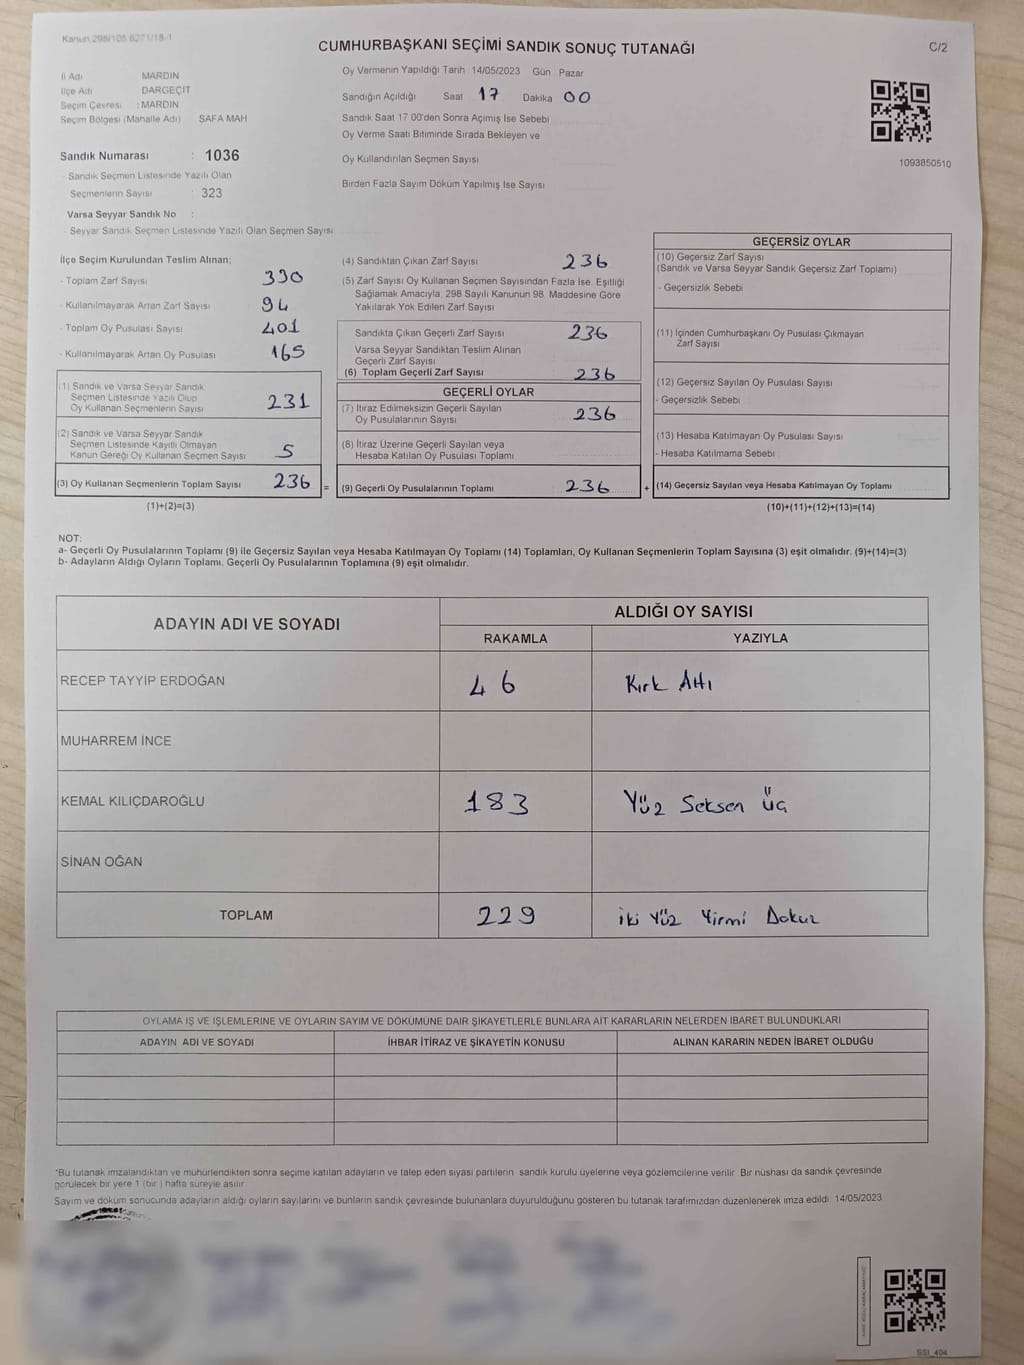 Kanun 298/105 6271/18-1
CUMHURBAŞKANI SEÇİMİ SANDIK SONUÇ TUTANAĞI
C/2
İl Adı MARDİN
İlçe Adı DARGEÇİT
Seçim Çevresi : MARDİN
Seçim Bölgesi (Mahalle Adı) SAFA MAH
Oy Vermenin Yapıldığı Tarih 14/05/2023 Gün Pazar
Sandığın Açıldığı Saat 17 Dakika 00
Sandık Saat 17 00'den Sonra Açımış İse Sebebi
Oy Verme Saati Bitiminde Sırada Bekleyen ve
Oy Kullandırılan Seçmen Sayısı
Birden Fazla Sayım Döküm Yapılmış İse Sayısı
1093850510
Sandık Numarası : 1036
- Sandık Seçmen Listesinde Yazılı Olan
Seçmenlerin Sayısı : 323
Varsa Seyyar Sandık No :
- Seyyar Sandık Seçmen Listesinde Yazılı Olan Seçmen Sayısı
İlçe Seçim Kurulundan Teslim Alınan:
- Toplam Zarf Sayısı 330
- Kullanılmayarak Artan Zarf Sayısı 94
- Toplam Oy Pusulası Sayısı 401
- Kullanılmayarak Artan Oy Pusulası 165
(1) Sandık ve Varsa Seyyar Sandık
Seçmen Listesinde Yazılı Olup
Oy Kullanan Seçmenlerin Sayısı 231
(2) Sandık ve Varsa Seyyar Sandık
Seçmen Listesinde Kayıtlı Olmayan
Kanun Gereği Oy Kullanan Seçmen Sayısı 5
(3) Oy Kullanan Seçmenlerin Toplam Sayısı 236 =
(1)+(2)=(3)
(4) Sandıktan Çıkan Zarf Sayısı 236
(5) Zarf Sayısı Oy Kullanan Seçmen Sayısından Fazla İse, Eşitliği
Sağlamak Amacıyla, 298 Sayılı Kanunun 98. Maddesine Göre
Yakılarak Yok Edilen Zarf Sayısı
Sandıkta Çıkan Geçerli Zarf Sayısı 236
Varsa Seyyar Sandıktan Teslim Alınan
Geçerli Zarf Sayısı
(6) Toplam Geçerli Zarf Sayısı 236
GEÇERLİ OYLAR
(7) İtiraz Edilmeksizin Geçerli Sayılan
Oy Pusulalarının Sayısı 236
(8) İtiraz Üzerine Geçerli Sayılan veya
Hesaba Katılan Oy Pusulası Toplamı
(9) Geçerli Oy Pusulalarının Toplamı 236 +
GEÇERSİZ OYLAR
(10) Geçersiz Zarf Sayısı
(Sandık ve Varsa Seyyar Sandık Geçersiz Zarf Toplamı)
- Geçersizlik Sebebi
(11) İçinden Cumhurbaşkanı Oy Pusulası Çıkmayan
Zarf Sayısı
(12) Geçersiz Sayılan Oy Pusulası Sayısı
- Geçersizlik Sebebi
(13) Hesaba Katılmayan Oy Pusulası Sayısı
- Hesaba Katılmama Sebebi
(14) Geçersiz Sayılan veya Hesaba Katılmayan Oy Toplamı
(10)+(11)+(12)+(13)=(14)
NOT:
a- Geçerli Oy Pusulalarının Toplamı (9) ile Geçersiz Sayılan veya Hesaba Katılmayan Oy Toplamı (14) Toplamları, Oy Kullanan Seçmenlerin Toplam Sayısına (3) eşit olmalıdır. (9)+(14)=(3)
b- Adayların Aldığı Oyların Toplamı, Geçerli Oy Pusulalarının Toplamına (9) eşit olmalıdır.
ADAYIN ADI VE SOYADI
ALDIĞI OY SAYISI
RAKAMLA YAZIYLA
RECEP TAYYİP ERDOĞAN 46 Kırk Altı
MUHARREM İNCE
KEMAL KILIÇDAROĞLU 183 Yüz Seksen Üç
SİNAN OĞAN
TOPLAM 229 İki Yüz Yirmi Dokuz
OYLAMA İŞ VE İŞLEMLERİNE VE OYLARIN SAYIM VE DÖKÜMÜNE DAİR ŞİKAYETLERLE BUNLARA AİT KARARLARIN NELERDEN İBARET BULUNDUKLARI
ADAYIN ADI VE SOYADI İHBAR İTİRAZ VE ŞİKAYETİN KONUSU ALINAN KARARIN NEDEN İBARET OLDUĞU
*Bu tutanak imzalandıktan ve mühürlendikten sonra seçime katılan adayların ve talep eden siyasi partilerin sandık kurulu üyelerine veya gözlemcilerine verilir. Bir nüshası da sandık çevresinde
görülecek bir yere 1 (bir ) hafta süreyle asılır
Sayım ve döküm sonucunda adayların aldığı oyların sayılarını ve bunların sandık çevresinde bulunanlara duyurulduğunu gösteren bu tutanak tarafımızdan düzenlenerek imza edildi. 14/05/2023
SSI_404